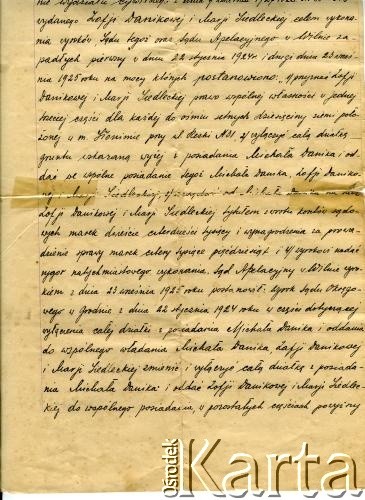 wydanego Zofji Danikowej i Marji Siedleckiej celem wykona-
nia wyroków, Sądu tegoż oraz Sądu Apelacyjnego w Wilnie za-
padłych pierwszy w dniu 22 stycznia 1924 i drugi dnia 23 wrześ-
nia 1925 roku na mocy których postanowiono: 1/ przyznać Zofji
Danikowej i Marji Siedleckiej prawo wspólnej własności w jednej
trzeciej części dla każdej do ośmiu setnych dziesięciny ziemi poło-
żonej w m. Słonimie przy ul. 2/ wyłączyć całą działkę
gruntu wskazaną wyżej z posiadania Michała Danika i od-
dać we wspólne posiadanie tegoż Michała Danika, Zofji Daniko-
wej i Marji Siedleckiej, 3/ od Michała Danika na rzecz
Zofji Danikowej i Marji Siedleckiej tytułem zwrotu kosztów sądo-
wych marek dzieście czterdzieści tysięcy i wynagrodzenia za prowa-
dzenie sprawy marek cztery tysiące pięćdziesiąt i 4/ wyrokowi nadać
rygor natychmiastowego wykonania. Sąd Apelacyjny w Wilnie wyro-
kiem z dnia 23 września 1925 roku postanowił: wyrok Sądu Okręgo-
wego w Grodnie z dnia 22 stycznia 1924 w części dotyczącej
wyłączenia całej działki z posiadania Michała Danika i oddania
do wspólnego władania Michała Danika, Zofji Danikowej
i Marji Siedleckiej zmienić i wyłączyć całą działkę z posiada-
nia Michała Danika i oddać Zofji Danikowej i Marji Siedlec-
kiej do wspólnego posiadania, w pozostałych częściach powyższy
Ośrodek
Karta